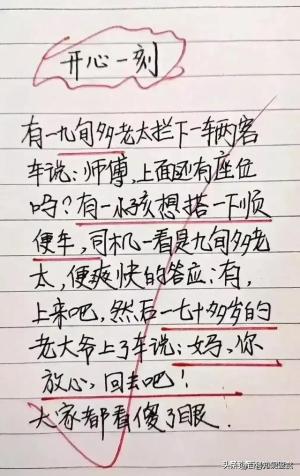 开心一刻
有一九旬多老太拦下一车两客
车说：师傅，上面还有座位
吗？有一小孩想搭一下顺
便车，司机一看是九旬多老
太，便爽快的答应：有，
上来吧，然后一七十多岁的
老大爷上了车说：妈，你
放心，回去吧！
大家都看傻了眼．